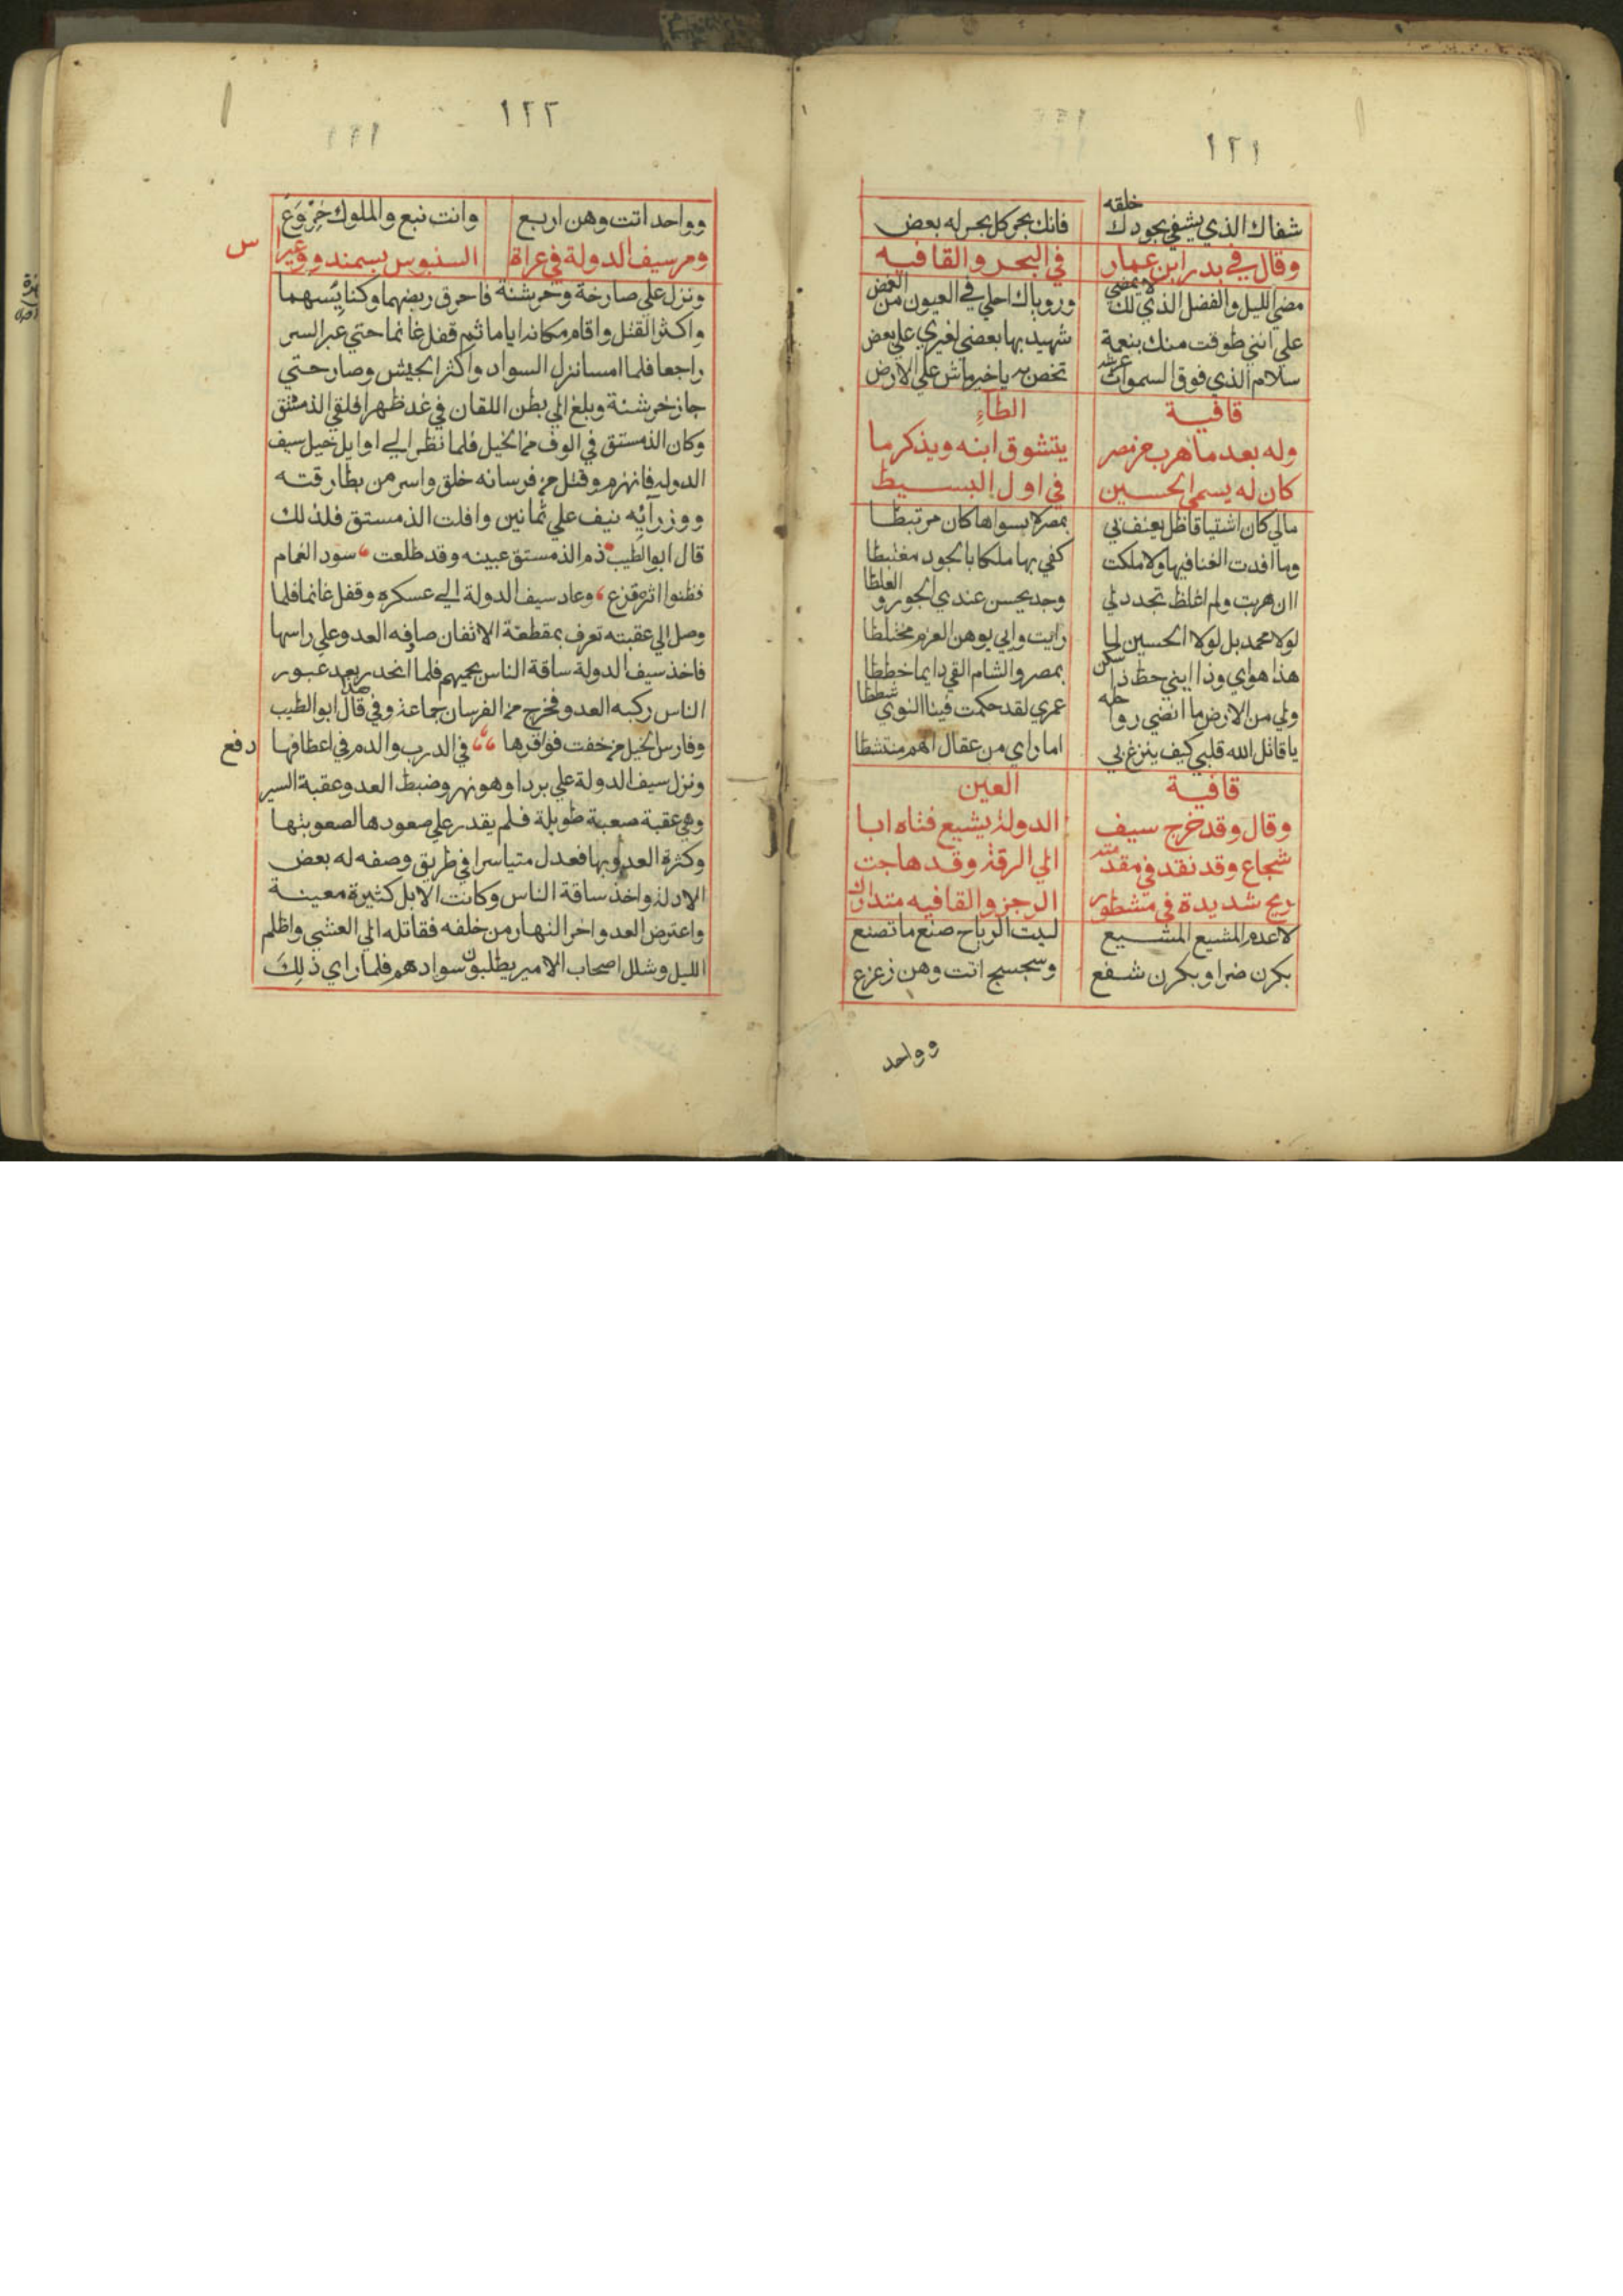 ١٢١
شفاك الذي يشفي بجودك خلقه فانك بحر كل بحر له بعض
وقال في بدر ابن عمار في البحر والقافيه
مضي الليل والفضل الذي لك لا يمضي ورؤياك احلي في العيون من الغمض
علي انني طوقت منك بنعمة شهيد بها بعضي لغيري علي بعض
سلام الذي فوق السموات عرشه تخص به يا خير ماش علي الارض
قافية الطآء
وله بعد ما هرب من مصر يتشوق ابنه ويذكر ما
كان له يسمي الحسين في اول البسيط
مالي كان اشتياقا ظل يعنف بي بمصر لا بسواها كان مرتبطا
وما افدت الغنا فيها ولا ملكت كفي بها ملكا بالجود مغتبطا
اان هربت ولم اغلظ تجدد لي وجد يحسن عندي الجور والغلظا
لولا محمد بل لولا الحسين لما رايت رايي بوهن العزم مختلطا
هذا هواي وذا ابني حظ ذا سكن بمصر والشام القي دايما خططا
ولي من الارض ما انضي رواحله عمري لقد حكمت فينا النوي شططا
يا قاتل الله قلبي كيف ينزع بي اما راي من عقال الهم منتشطا
قافية العين
وقال وقد خرج سيف الدولة يشيع فتاه ابا
شجاع وقد نفد في مقدمته الي الرقة وقد هاجت
ريح شديدة في مشطور الرجز والقافيه متدارك
لا عدم المشيع المشيع ليت الرياح صنع ما تصنع
بكرن ضرا وبكرن شفع وسجسج انت وهن زعزع
وواحد
١٢٢
وواحد انت وهن اربع وانت نبع والملوك خروع
ومر سيف الدولة في غزاة السنبوس بسمندو وعبر ا س
ونزل علي صارخة وخرشنة فاحرق ربضهما وكنايسهما
واكثر القتل واقام مكانه اياما ثم قفل غانما حتي عبر السر
راجعا فلما امسا نزل السواد واكثر الجيش وصار حتي
جاز خرشنة وبلغ الي بطن اللقان في غد ظهرا فلقي الدمستق
وكان الدمستق في الوف من الخيل فلما نظر الي اوايل خيل سيف
الدوله فانهزم وقتل من فرسانه خلق واسر من بطارقته
ووزرآئه نيف علي ثمانين وافلت الدمستق فلذلك
قال ابو الطيب ذم الدمستق عينه وقد طلعت سود الغمام
فظنوا اثره قزع وعاد سيف الدولة الي عسكره وقفل غانما فلما
وصل الي عقبته تعرف بمقطعة الاثفان صافه العدو علي راسها
فاخذ سيف الدولة ساقة الناس يحميهم فلما انحدر بعد عبور
الناس ركبه العدو فخرج من الفرسان جماعة وفي هذا قال ابو الطيب
وفارس الخيل من خفت فوقرها في الدرب والدم في اعطافها دفع
ونزل سيف الدولة علي بردا وهو نهر وضبط العدو عقبة السير
وهي عقبة صعبة طويلة فلم يقدر علي صعودها لصعوبتها
وكثرة العدو بها فعدل متياسرا في طريق وصفه له بعض
الادلة واخذ ساقة الناس وكانت الابل كثيرة معينة
واعترض العدو اخر النهار من خلفه فقاتله الي العشي واظلم
الليل وشلل اصحاب الامير يطلبون سوادهم فلما راي ذلك